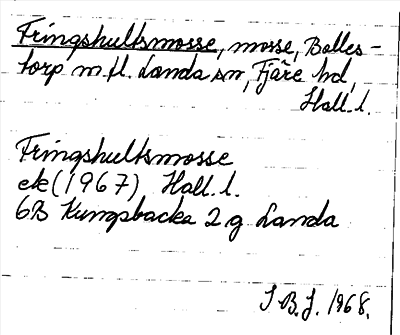 Fringshultsmosse, mosse, Bolles-
torp m.fl. Landa sn, Fjäre hd,
Hall. l.
Fringshultsmosse
ek (1967) Hall. l.
6B Kungsbacka 2 g Landa
S B. J. 1968.